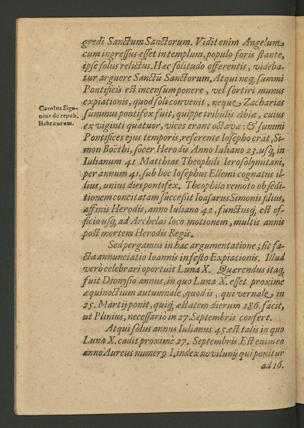 gredi Sanctum Sanctorum. Vidit enim Angelum
cum ingressus esset in templum, populo foris stante,
ipse solus relictus. Hec solitudo offerentis, videba-
tur arguere Sanctũ Sanctorum. Atqui neq; summi
Pontificis est incensum ponere, vel sortiri munus
expiationis, quod soli convenit, neque Zacharias
summus pontifex fuit, quippe tribulis Abia, cuius
ex viginti quatuor, vices erant octavæ: & summi
Pontifices ejus temporis, referente Iosepho erat, Si-
mon Boëthi, socer Herodis Anno Iuliano 23. usq; in
Iulianum 41 Matthias Theophili Ierosolymitani,
per annum 41. sub hoc Iosephus Ellemi cognatus il-
lius, unius diei pontifex, Theophilo remoto ob sedi-
tionem concitatam successit Ioasarus Simonis filius,
affinis Herodis, anno Iuliano 42, functusq; est of-
ficio usq; ad Archelai loco motionem, multis annis
post mortem Herodis Regis.
Carolus Sigo-
nius de repub.
Hebræorum.
Sed pergamus in hac argumentatione; sit fa-
cta annunciatio Ioannis in festo Expiationis. Illud
vero celebrari oportuit Luna X. Quærendus itaq;
fuit Dionysio annus, in quo Luna X. esset proxime
æquinoctium autumnale, quod is, qui vernale, in
25. Martij ponit, quiq; ætatem dierum 186. facit,
ut Plinius, necessario in 27. Septembris confert.
Atqui solus annus Iulianus 45. est talis in quo
Luna X. cadit proxime 27. Septembris. Est enim eo
anno Aureus numerꝰ I, index novilunij qui ponitur
ad 16.